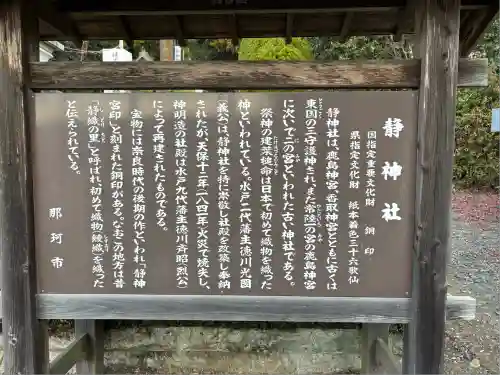 静神社
国指定重要文化財　銅印
県指定文化財　紙本着色三十六歌仙
静神社は、鹿島神宮、香取神宮とともに古くは
東国の三守護神され、また常陸一の宮の鹿島神宮
に次いで二の宮といわれた古い神社である。
祭神の建葉槌命は日本で初めて織物を織った
神といわれている。水戸二代藩主徳川光圀
（義公）は、静神社を特に崇敬し社殿を改築し奉納
されたが、天保十二年（一八四一年）火災で焼失し、
神明造の社殿は水戸九代藩主徳川斉昭（烈公）
によって再建されたものである。
宝物には奈良時代の後期の作といわれ「静神
宮印」と刻まれた銅印がある。なおこの地方は昔
「静織の里」と呼ばれ初めて織物（綾織）を織った
と伝えられている。
那珂市